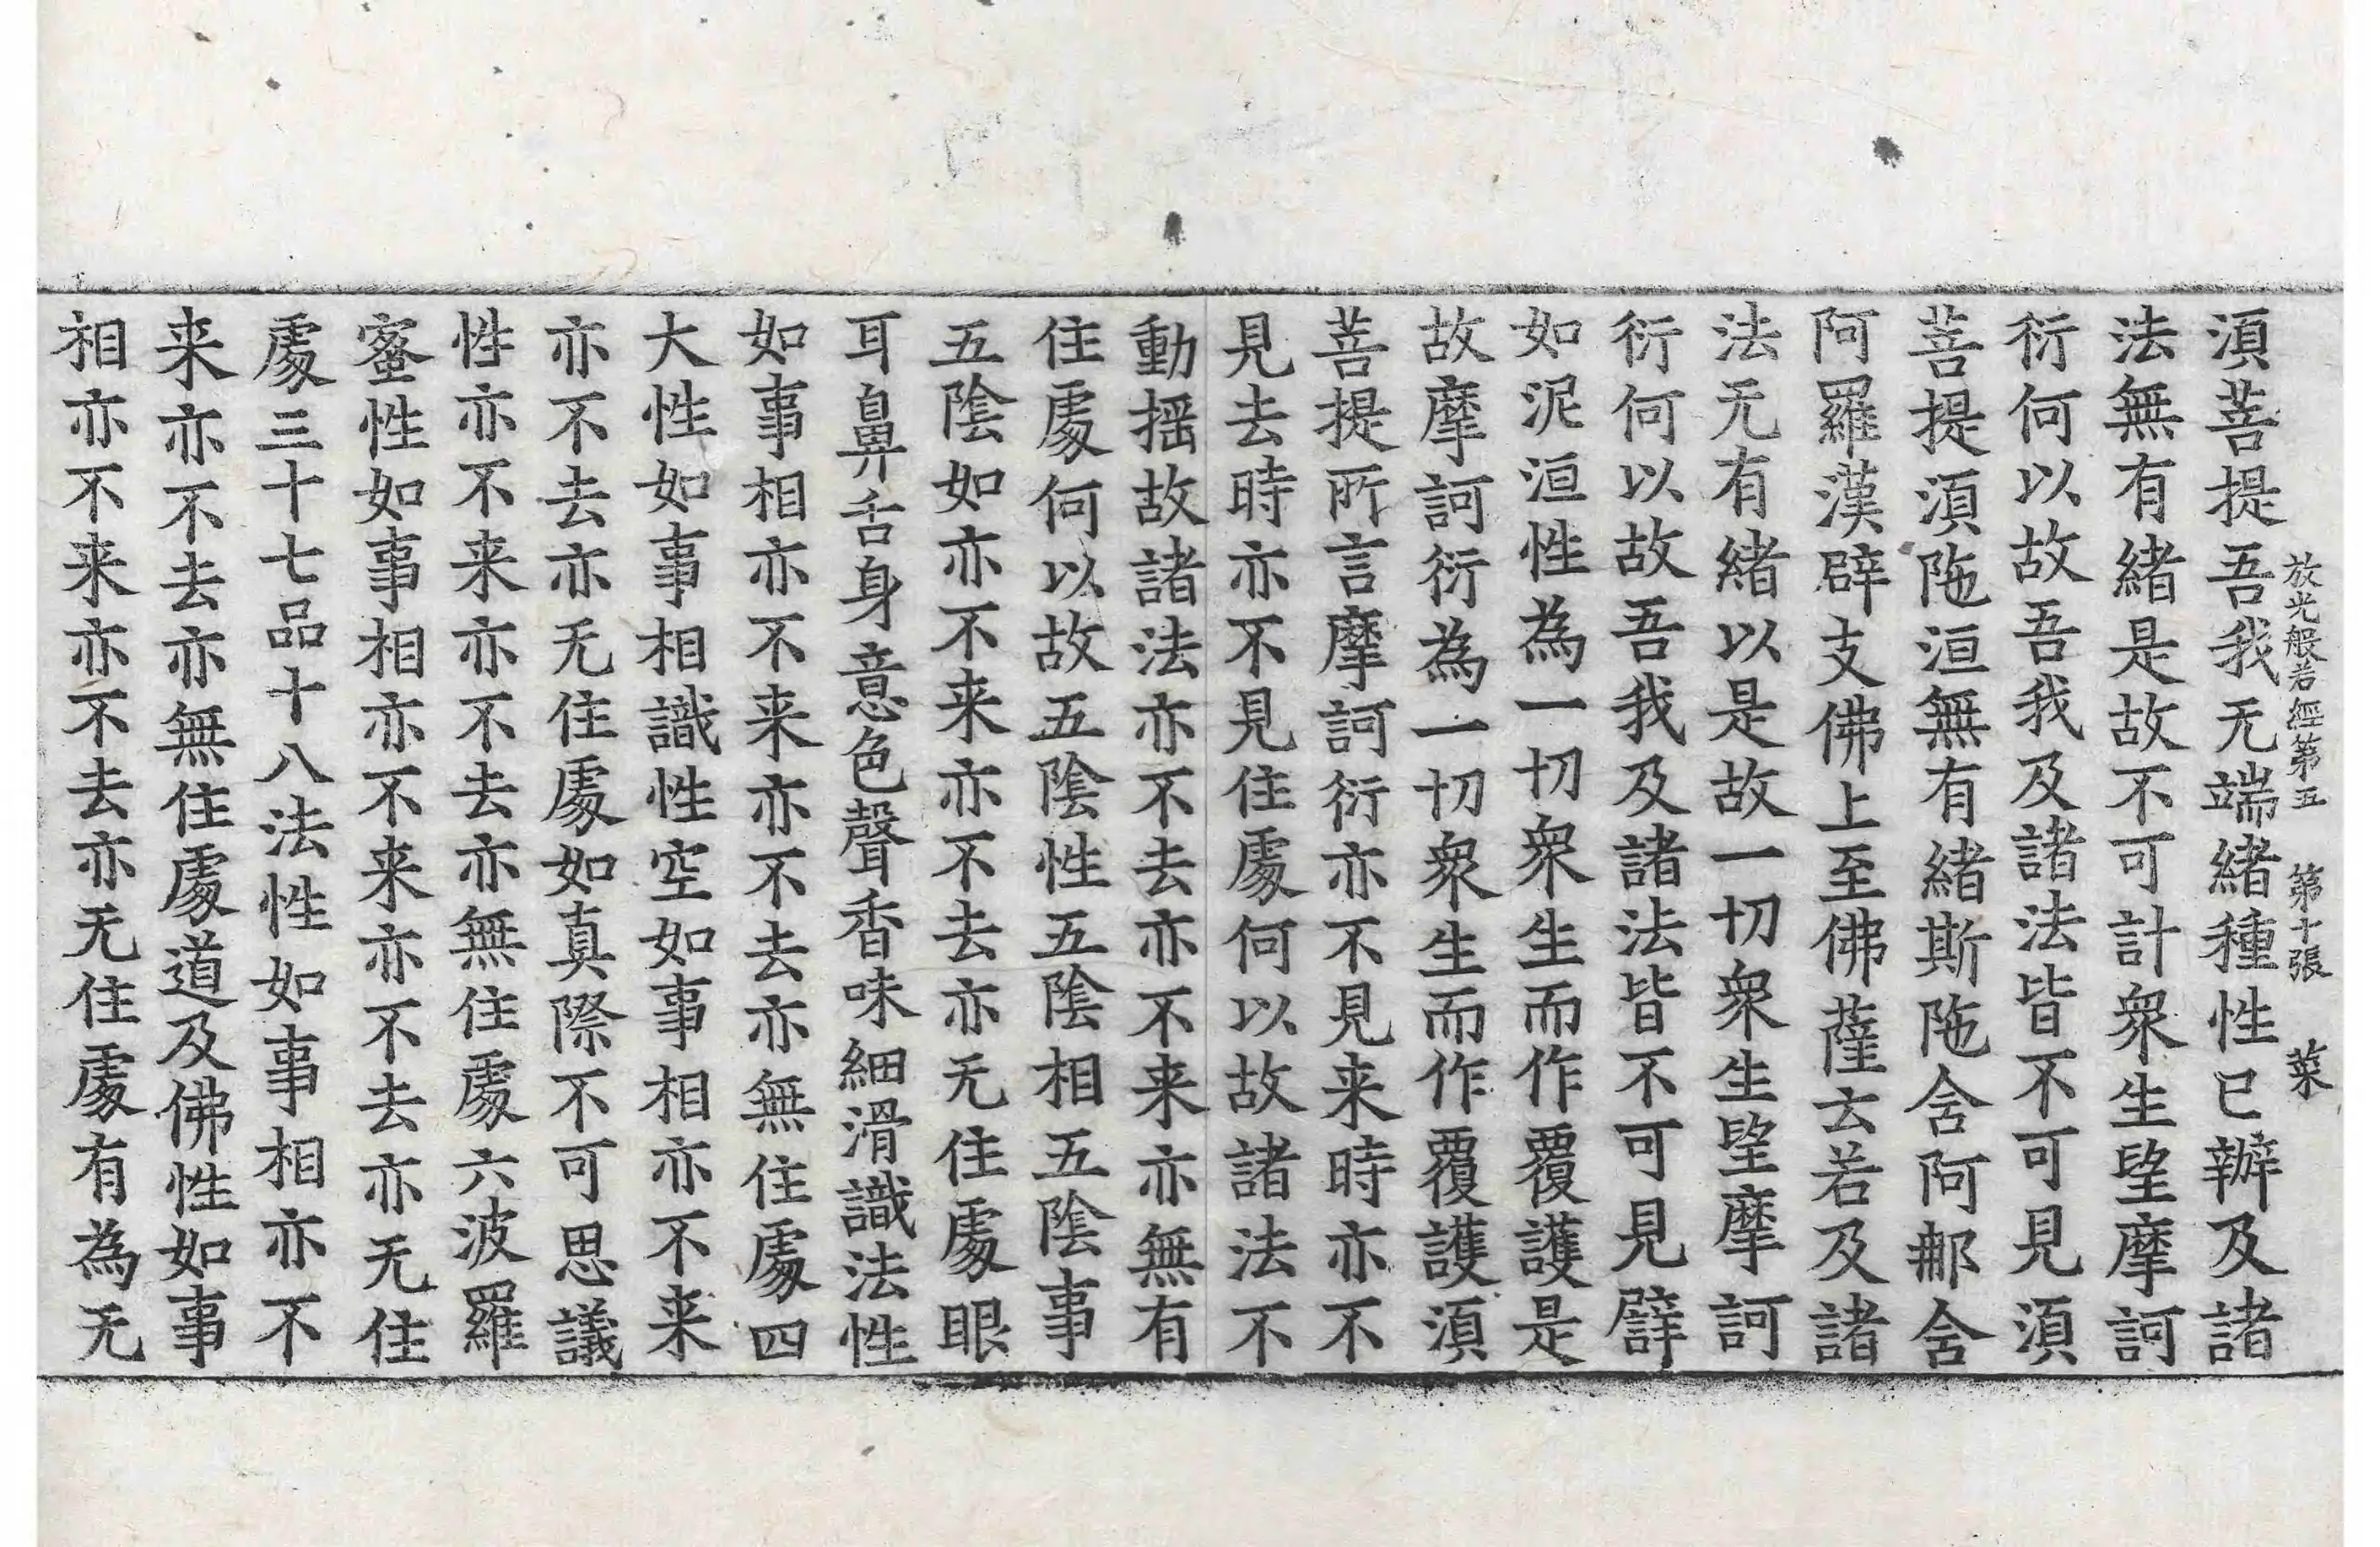 放光般若經第五　第十張　菜
湏菩提吾我无端緒種性已辦及諸
法無有緒是故不可計衆生望摩訶
衍何以故吾我及諸法皆不可見湏
菩提湏陁洹無有緒斯陁含阿那含
阿羅漢辟支佛上至佛薩云若及諸
法无有緒以是故一切衆生望摩訶
衍何以故吾我及諸法皆不可見譬
如泥洹性為一切衆生而作覆護是
故摩訶衍為一切衆生而作覆護湏
菩提所言摩訶衍亦不見来時亦不
見去時亦不見住處何以故諸法不
動揺故諸法亦不去亦不来亦無有
住處何以故五陰性五陰相五陰事
五陰如亦不来亦不去亦无住處眼
耳鼻舌身意色聲香味細滑識法性
如事相亦不来亦不去亦無住處四
大性如事相識性空如事相亦不来
亦不去亦无住處如真際不可思議
性亦不来亦不去亦無住處六波羅
蜜性如事相亦不来亦不去亦无住
處三十七品十八法性如事相亦不
来亦不去亦無住處道及佛性如事
相亦不来亦不去亦无住處有為无